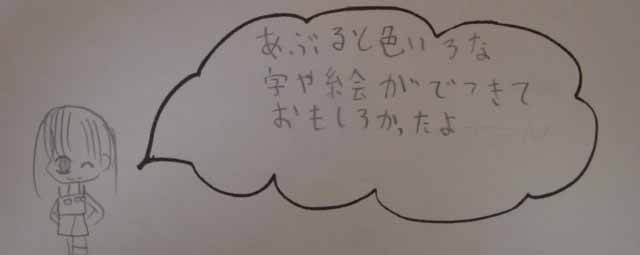 あぶると色いろな
字や絵がでてきて
おもしろかったよ